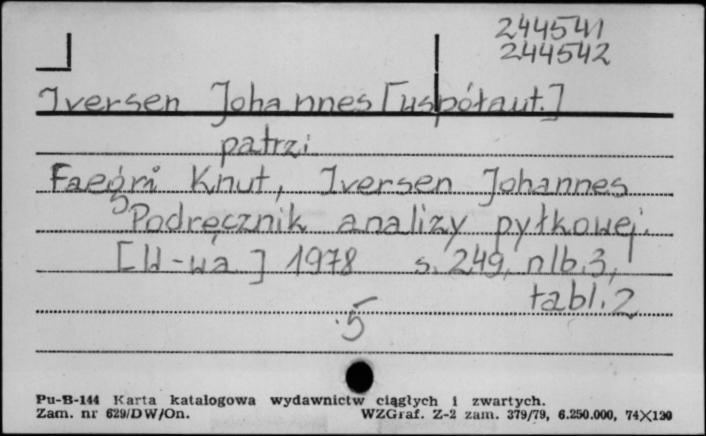 244541
244542
Iversen Johannes [współaut.]
patrzi
Faegri Knut, Iversen Johannes
Podręcznik analizy pyłkowej.
[W-wa] 1978 s. 249, nlb. 3,
tabl. 2
.5
Pu-B-144 Karta katalogowa wydawnictw ciągłych i zwartych.
Zam. nr 629/DW/On. WZGraf. Z-2 zam. 379/79, 6.250.000, 74X120